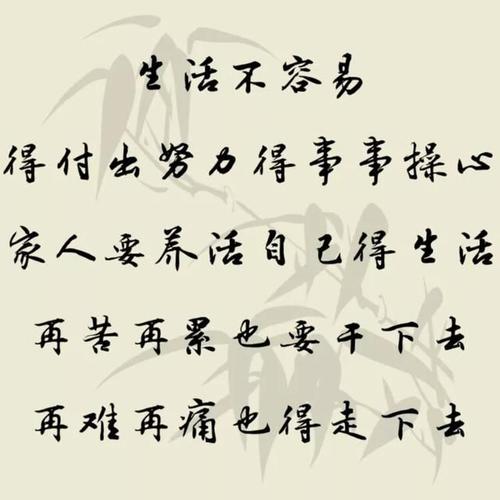 生活不容易
得付出努力得事事操心
家人要养活自己得生活
再苦再累也要干下去
再难再痛也得走下去